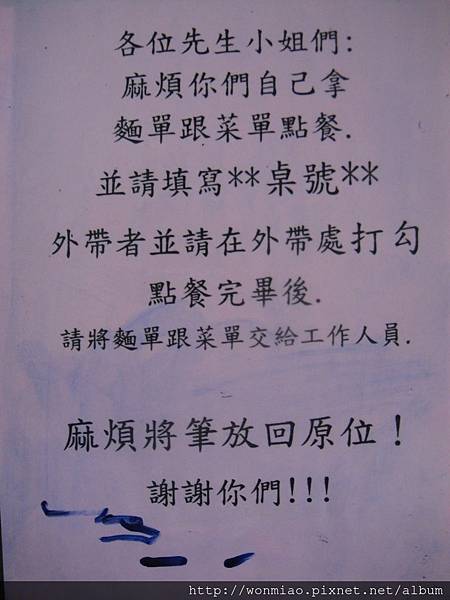 各位先生小姐們:
麻煩你們自己拿
麵單跟菜單點餐.
並請填寫**桌號**
外帶者並請在外帶處打勾
點餐完畢後.
請將麵單跟菜單交給工作人員.
麻煩將筆放回原位！
謝謝你們!!!
http://wonmiao.pixnet.net/album